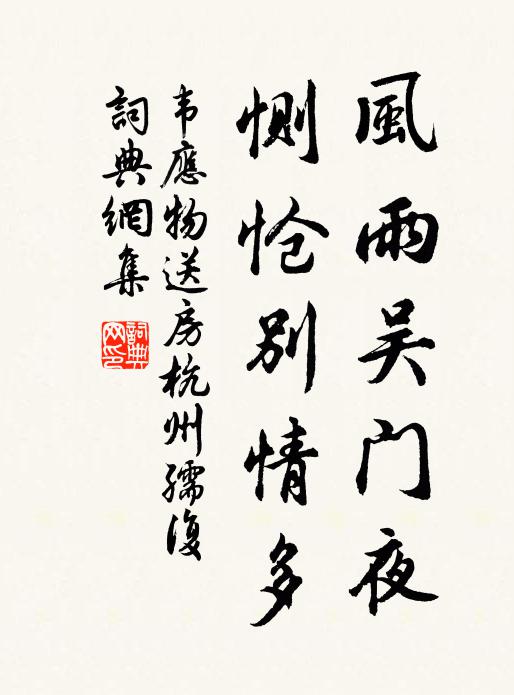 風雨吴门夜
恻怆别情多
韦應物送房杭州孺復
詞典網集
詞典网印